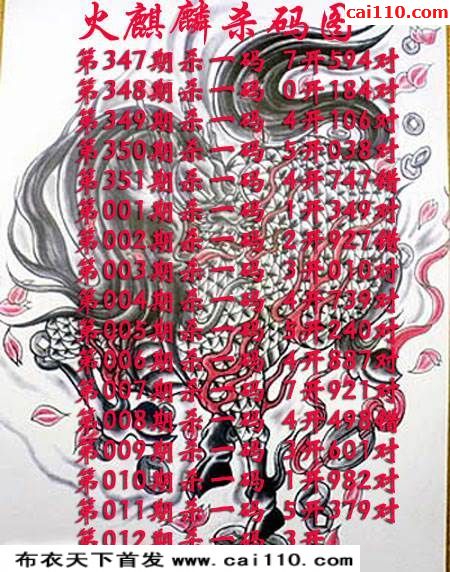 cai110.com热
火麒麟杀码图
第347期杀一码 7开594对
第348期杀一码 0开184对
第349期杀一码 4开106对
第350期杀一码 5开038对
第351期杀一码 4开747错
第001期杀一码 1开349对
第002期杀一码 2开927错
第003期杀一码 3开010对
第004期杀一码 4开739对
第005期杀一码 开240对
第006期杀一码 4开887对
第007期杀一码 7开921对
第008期杀一码 4开498错
第009期杀一码 3开601对
第010期杀一码 1开982对
第011期杀一码 5开379对
第012期杀一码 3开
布衣天下首发 www.cai110.com